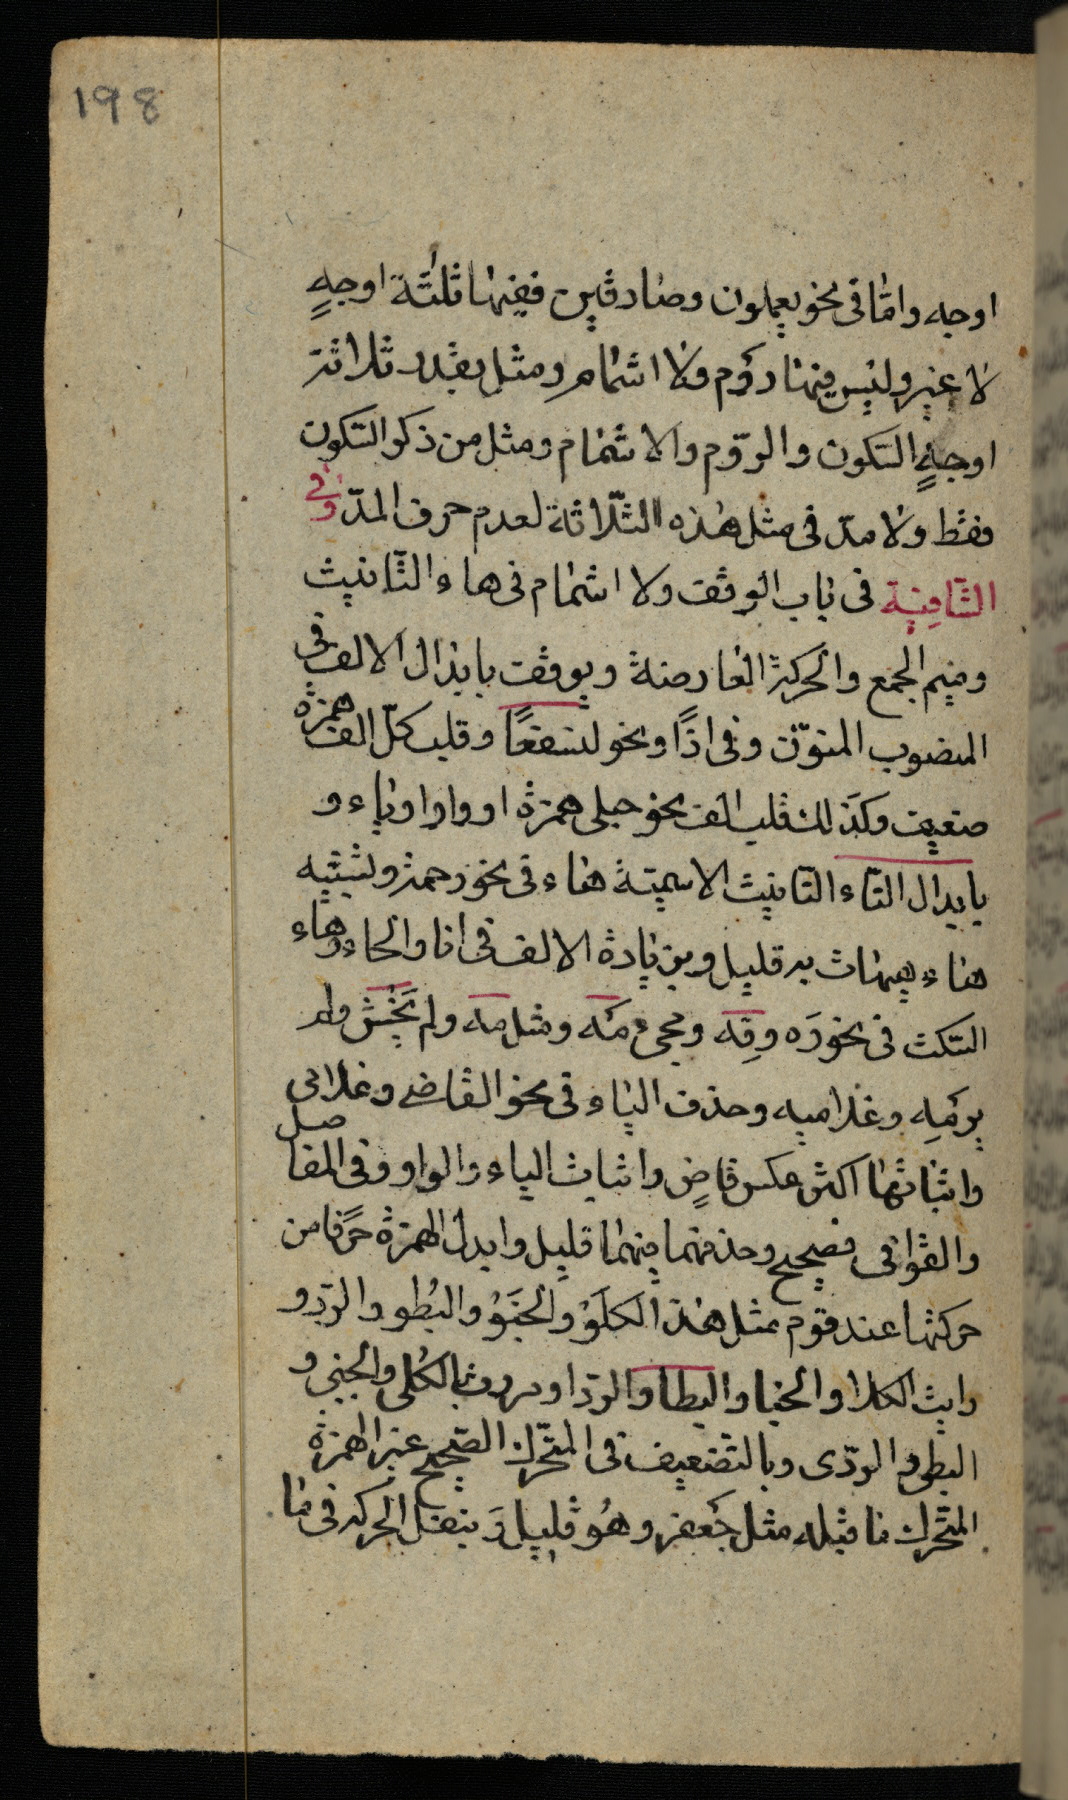 198
اوجه وامّا فى نحو يعملون وصادقين ففيها ثلٰثة اوجهٍ
لا غير وليس فيها روم ولا اشمام ومثل يقدر ثلاثة
اوجهٍ السّكون والرّوم والاشمام ومثل من ذكر السّكون
فقط ولا مدّ فى مثل هذه الثّلاثة لعدم حرف المدّ وفى
الشّافية فى باب الوقف ولا اشمام فى هاء التّأنيث
وميم الجمع والحركة العارضة ويوقف بابدال الالف فى
المنصوب المنوّن وفى اذًا ونحو لنسفعًا وقلب كلّ الف همزة
ضعيف وكذلك قلب الف نحو حبلى همزة او واوا او ياء و
بابدال التّاء التّأنيث الاسميّة هاء فى نحو رحمة وتشبيه
هاء هيهات به قليل وبزيادة الالف فى انا والحاء وهاء
السّكت فى نحو رَه وقِه ومجىء مَه ومثل مه ولم يَخْشَ ولم
يرمِه وغلاميه وحذف الياء فى نحو القاضى وغلامى
واثباتها اكثر عكس قاضٍ واثبات الياء والواو وفى المفاصل
والقوافى فصيح وحذفهما فيهما قليل وابدل الهمزة حرفًا من
حركتها عند قوم مثل هذا الكلَوْ والخَبَوْ والبُطو والرّدو
رايت الكلا والخبا والبطا والردا ومررت بالكلى والخبى و
البطى والردّى وبالتّضعيف فى المتحّرك الصّحيح غير الهمزة
المتحّرك ما قبله مثل جَعفر وهُو قليل وَ ينقل الحركه فى ما